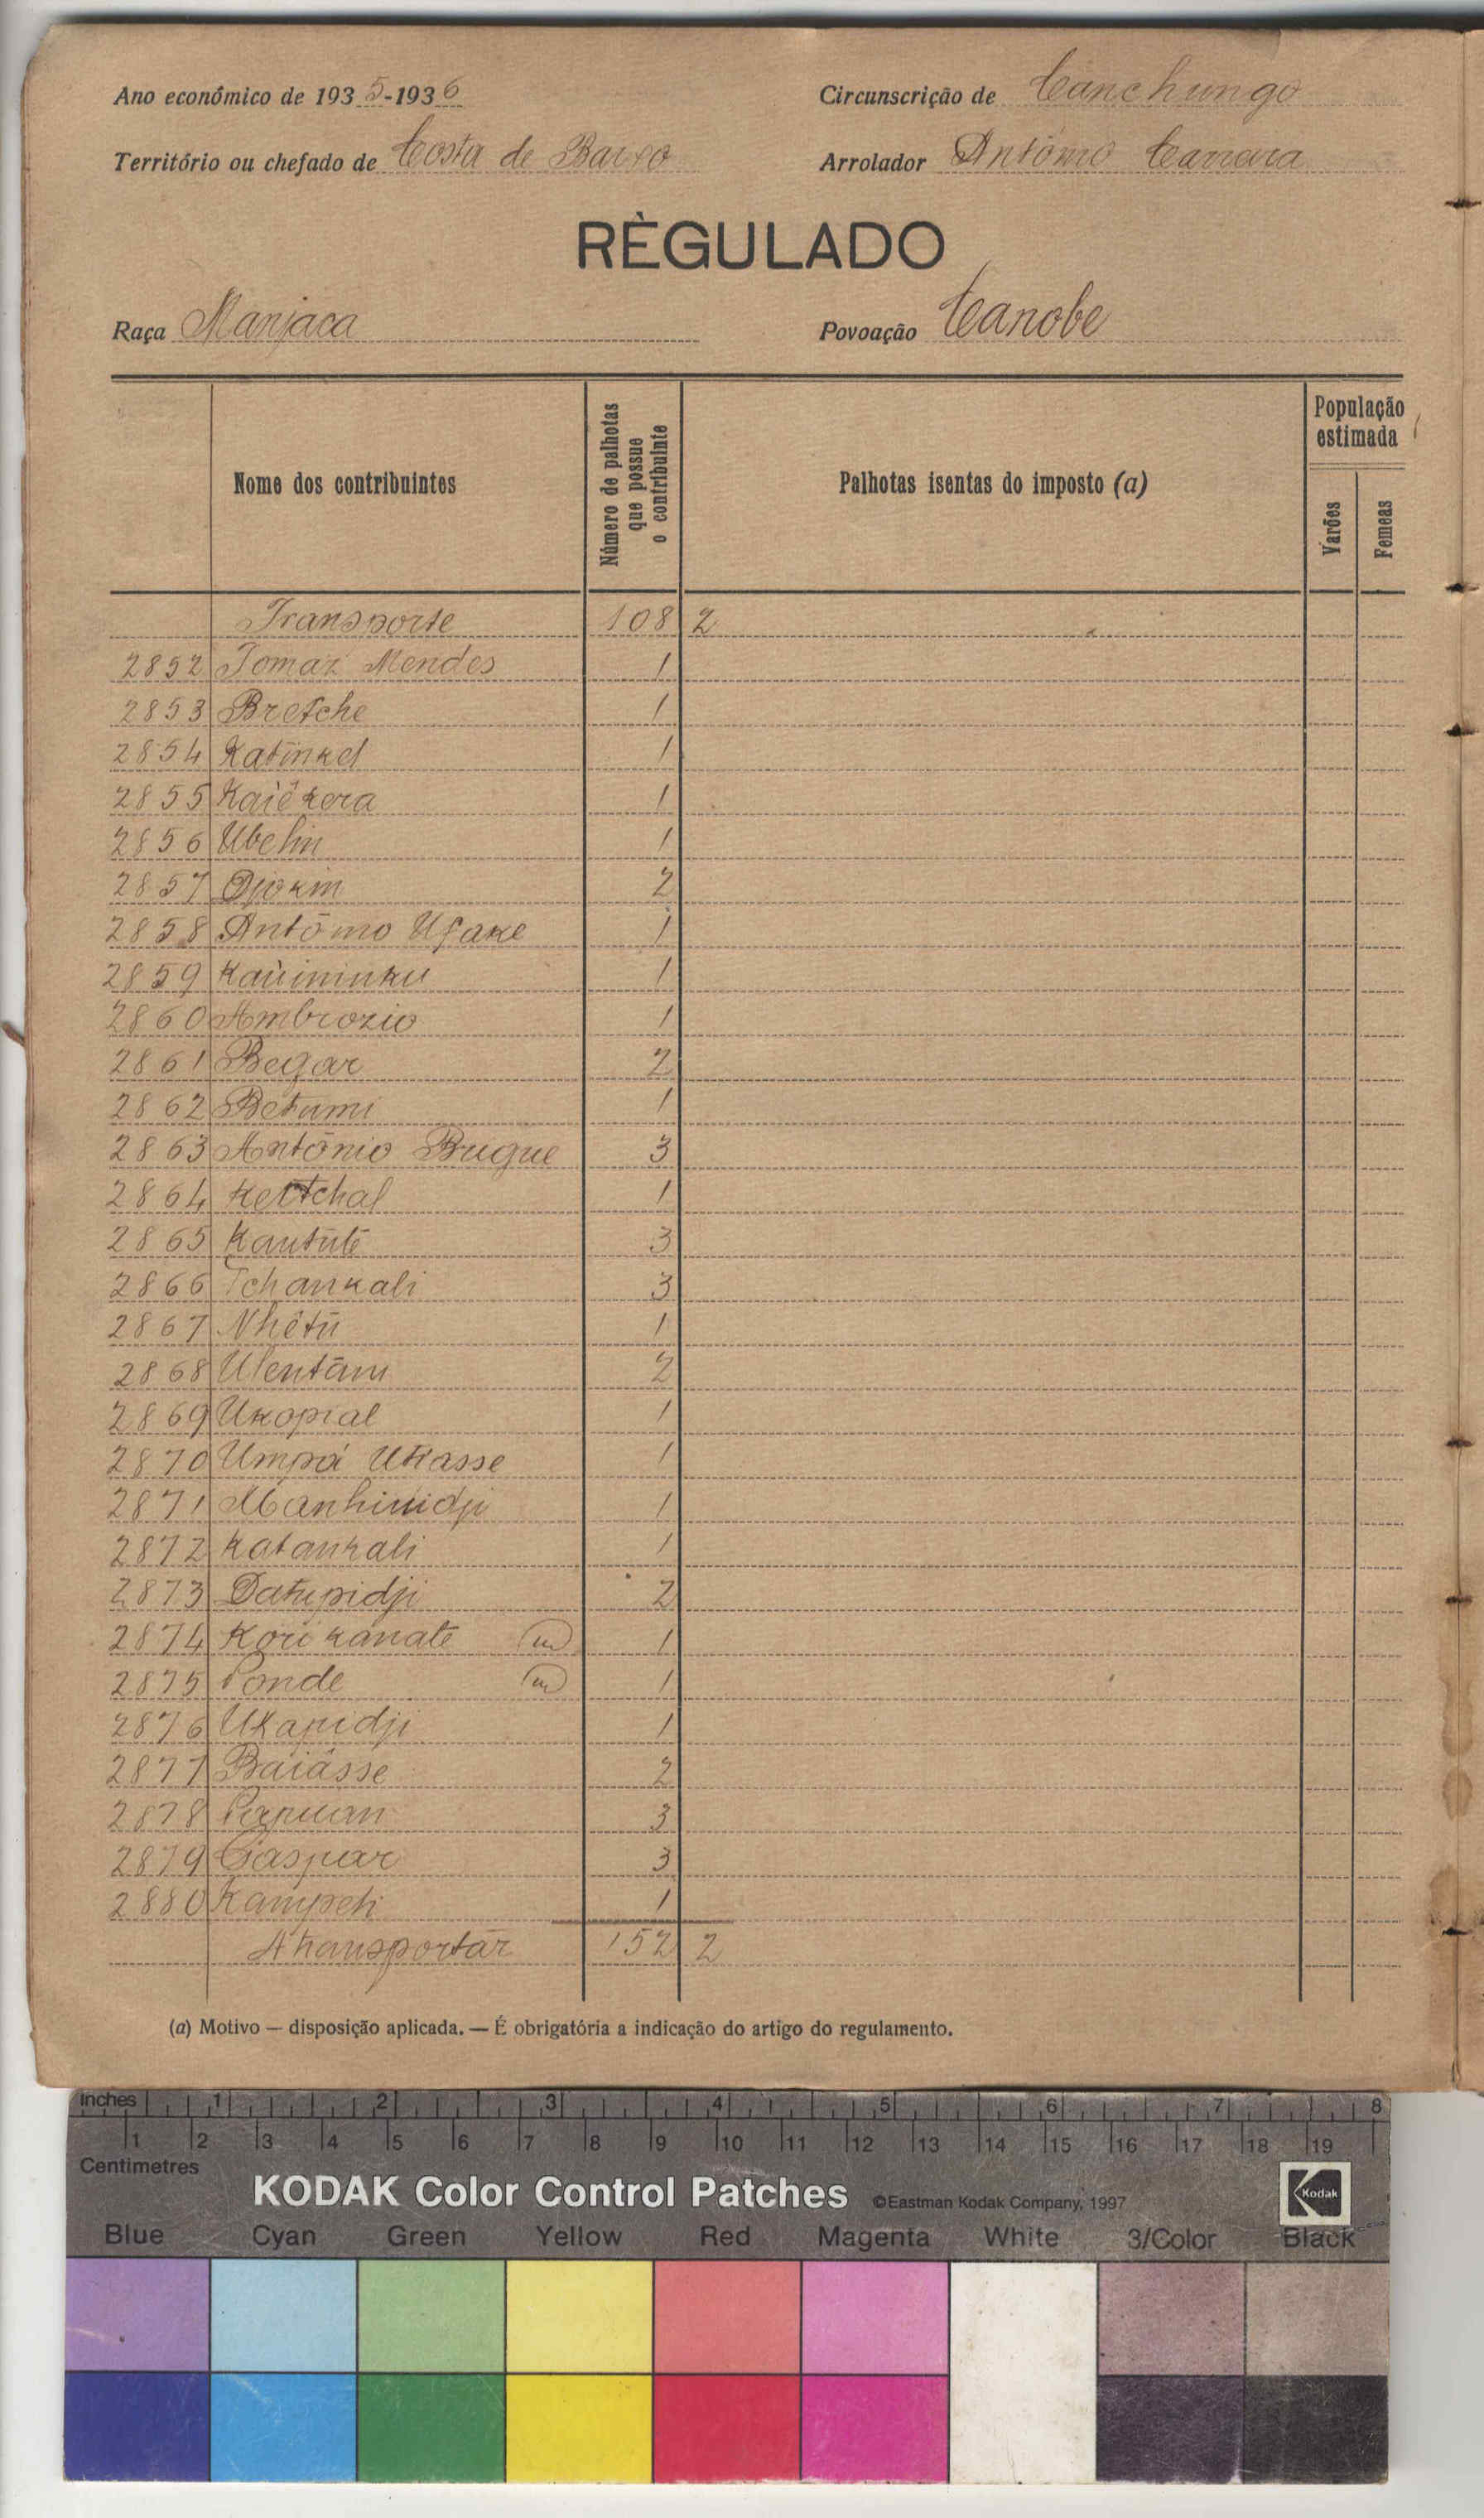 Ano económico de 1935-1936
Circunscrição de Canchungo
Território ou chefado de Costa de Baixo
Arrolador António Carrera
RÈGULADO
Raça Manjaca
Povoação Canobe
Nome dos contribuintes
Número de palhotas que possue o contribuinte
Palhotas isentas do imposto (a)
População estimada
Varões
Femeas
Transporte 108 2
2852 Tomaz Mendes 1
2853 Bretche 1
2854 Katinkel 1
2855 Kaiêkera 1
2856 Ubelin 1
2857 Djokin 2
2858 António Ufake 1
2859 1
2860 Ambrozio 1
2861 Begar 2
2862 Betumi 1
2863 António Bugue 3
2864 Kettchal 1
2865 Kantúte 3
2866 Tchankali 3
2867 Nhêtú 1
2868 Ulentam 2
2869 Ukopial 1
2870 Umpá Ukasse 1
2871 Manhinidji 1
2872 Katankali 1
2873 Datupidji 2
2874 Kori kanate (m) 1
2875 Ponde (m) 1
2876 Ukapidji 1
2877 Baiásse 2
2878 3
2879 Gaspar 3
2880 Kampeti 1
A transportar 152 2
(a) Motivo — disposição aplicada. — É obrigatória a indicação do artigo do regulamento.
Inches 1 2 3 4 5 6 7 8
1 2 3 4 5 6 7 8 9 10 11 12 13 14 15 16 17 18 19
Centimetres
KODAK Color Control Patches ©Eastman Kodak Company, 1997 Kodak
Blue Cyan Green Yellow Red Magenta White 3/Color Black